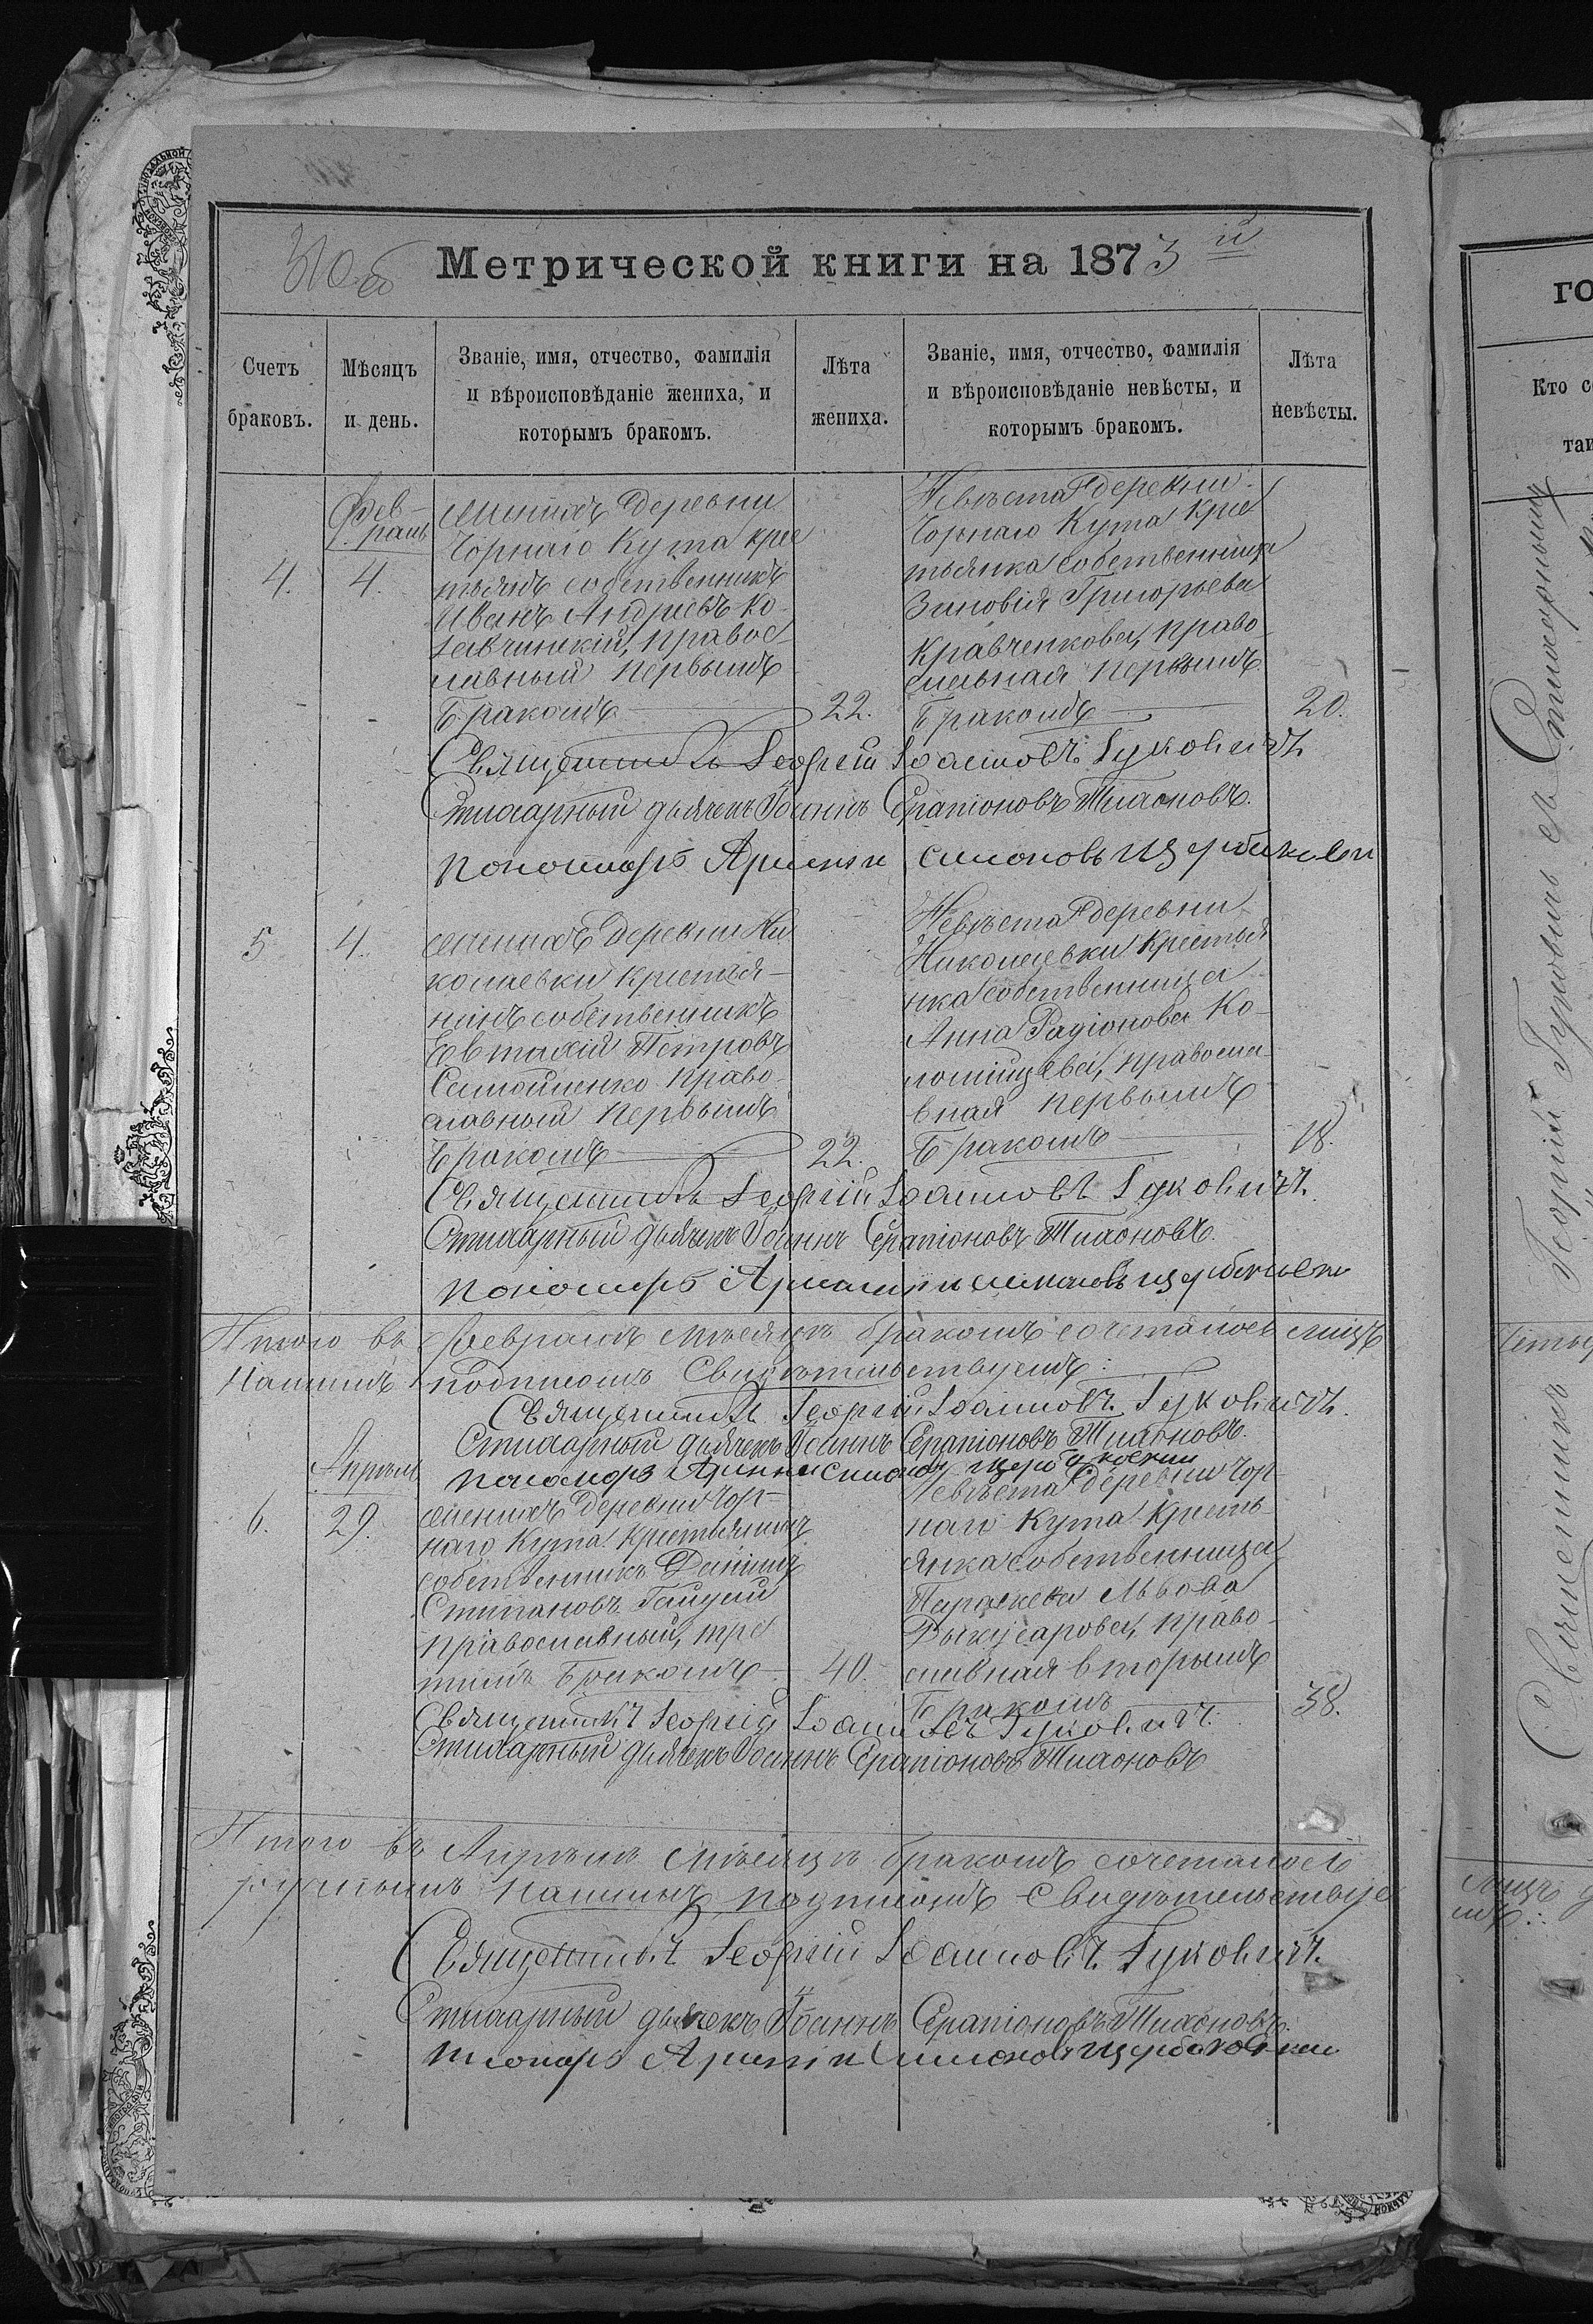 310 об
Метрической книги на 1873 й
Счетъ браковъ.
Мѣсяцъ и день.
Званіе, имя, отчество, фамилія и вѣроисповѣданіе жениха, и которымъ бракомъ.
Лѣта жениха.
Званіе, имя, отчество, фамилія и вѣроисповѣданіе невѣсты, и которымъ бракомъ.
Лѣта невѣсты.
Фев-
раль
4.
4.
Женихъ деревни
Чорнаго Кута крес
тьянъ собственникъ
Иванъ Андріевъ Ко-
равос-
лавный первымъ
Бракомъ
22.
Невѣста деревни
Чорнаго Кута Крес
тьянка собственница
Зиновія Григорьева
Кравченкова, право
славная первымъ
Бракомъ
20.
Священникъ Георгій Іоанновъ Гуковичъ
Стихарный дьячекъ Іоаннъ Серапіоновъ Тихоновъ.
Пономарь Симоновъ Щербаковскій
5
4.
Женихъ деревни Ни
колаевки крестья-
нинъ собственникъ
Евтахій Петровъ
Самойленко право-
славный первымъ
Бракомъ
22.
Невѣста деревни
Николаевки Крестья
нка собственница
Анна Радіонова Ко-
ломійцева, правосла
вная первымъ
Бракомъ
18.
Священникъ Георгій Іоанновъ Гуковичъ.
Стихарный дьячекъ Іоаннъ Серапіоновъ Тихоновъ.
Пономарь Симоновъ Щербаковскій
Итого въ Февралѣ мѣсяцѣ бракомъ сочеталось лицъ
Нашимъ подписомъ Свидѣтельствуемъ:
Священникъ Георгій Іоанновъ Гуковичъ.
Стихарный дьячекъ Іоаннъ Серапіоновъ Тихоновъ.
Пономарь Симоновъ Щербаковскій
Апрѣль
6.
29.
Женихъ деревни Чор-
наго Кута Крестьянинъ
собственникъ Даніилъ
Стипановъ Гайдай
Православный, тре
тимъ Бракомъ
40.
Невѣста деревни Чор-
наго Кута Кресть-
янка собственница
Параскева Львова
право-
славная вторымъ
Бракомъ
38.
Священникъ Георгій Іоанновъ Гуковичъ.
Стихарный дьячекъ Іоаннъ Серапіоновъ Тихоновъ
Итого въ Апрѣлѣ мѣсяцѣ бракомъ сочеталось
нашимъ подписомъ Свидѣтельствуе
Священникъ Георгій Іоанновъ Гуковичъ.
Стихарный дьячекъ Іоаннъ Серапіоновъ Тихоновъ.
Пономарь Симоновъ Щербаковскій
го
Кто со
таи
Священникъ Георгій Гуковичъ съ Стихарнымъ
Лицъ
мъ: